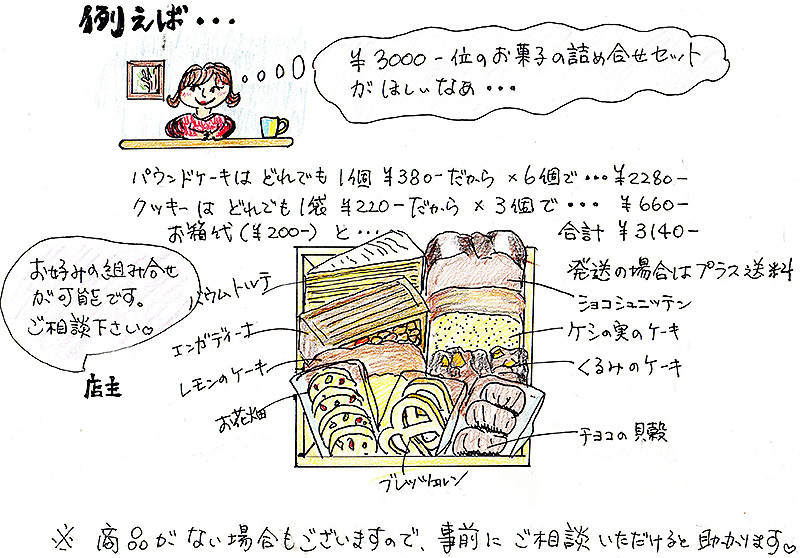 例えば・・・
¥3000-位のお菓子の詰め合せセット
がほしいなぁ・・・
パウンドケーキは どれでも 1個 ¥380-だから ×6個で・・・¥2280-
クッキーは どれでも 1袋 ¥220-だから × 3個で・・・ ¥660-
お箱代(¥200-)と・・・ 合計 ¥3140-
発送の場合はプラス送料
お好みの組み合せ
が可能です。
ご相談下さい♡
店主
バウムトルテ
エンガディーナ
レモンのケーキ
お花畑
ブレッツェルン
ショコシュニッテン
ケシの実のケーキ
くるみのケーキ
チョコの貝殻
※ 商品がない場合もございますので、事前に ご相談いただけると 助かります♡